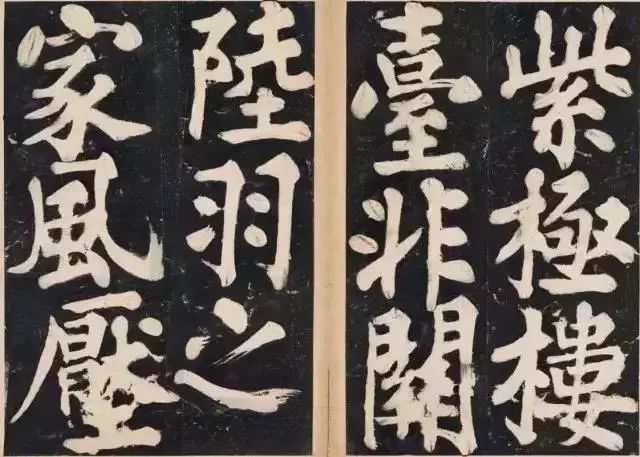 紫極樓
臺非關
陸羽之
家風壓